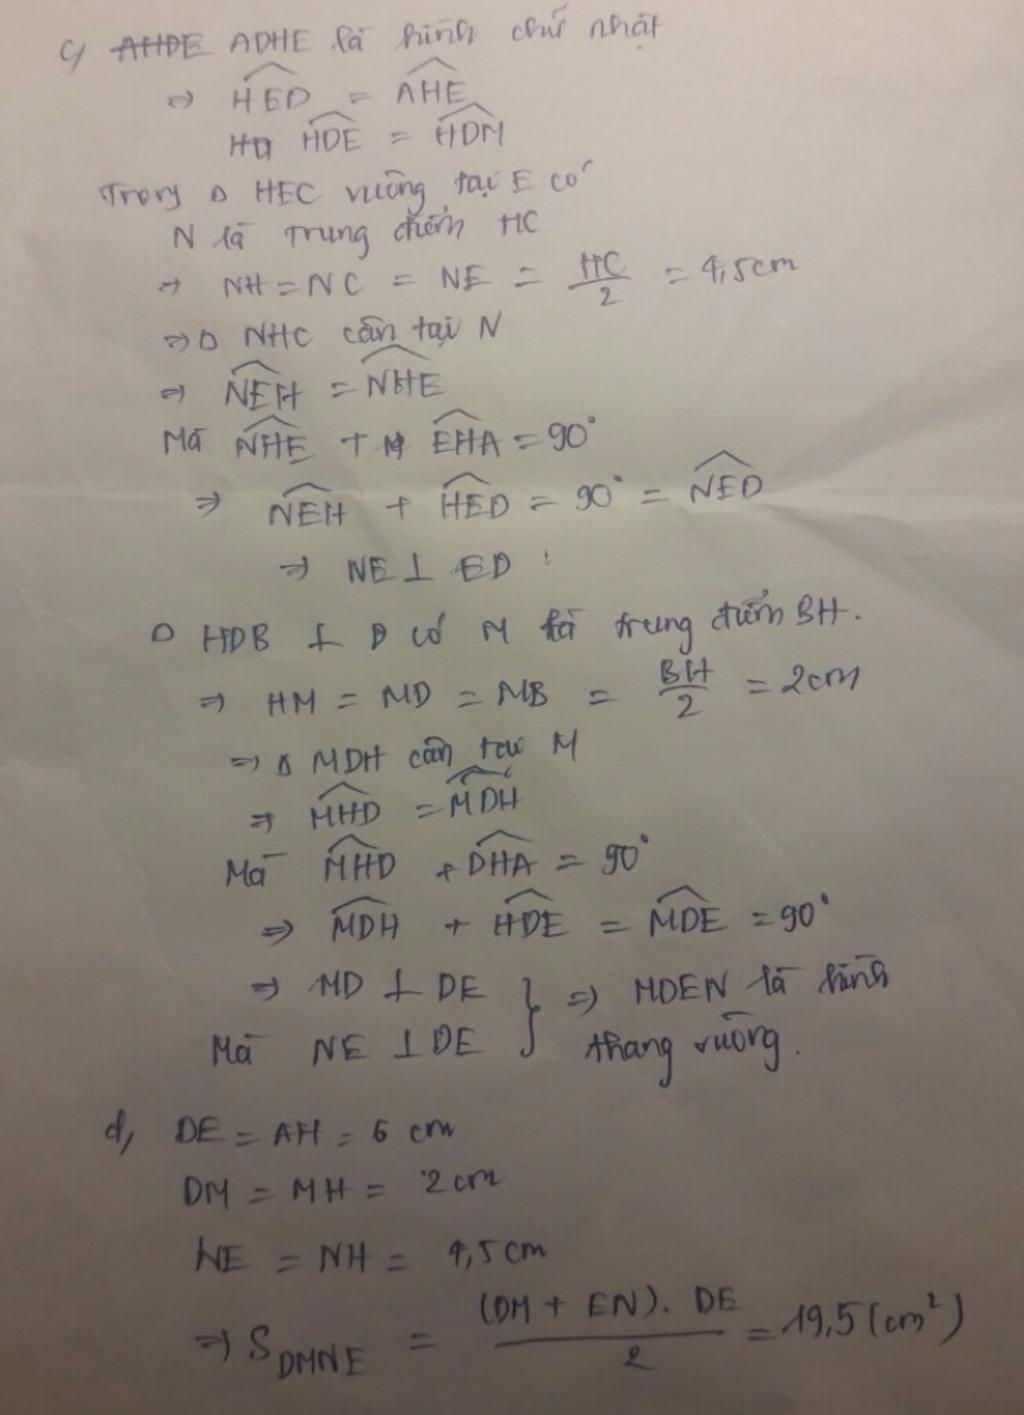 c, AHDE ADHE là hình chữ nhật
⇒ \widehat{HED} = \widehat{AHE}
\widehat{HDE} = \widehat{HDM}
Trong Δ HEC vuông tại E có
N là trung điểm HC
⇒ NH = NC = NE = \frac{HC}{2} = 4,5cm
⇒ Δ NHC cân tại N
⇒ \widehat{NEH} = \widehat{NHE}
Mà \widehat{NHE} + \widehat{EHA} = 90°
⇒ \widehat{NEH} + \widehat{HED} = 90° = \widehat{NED}
⇒ NE ⊥ ED
Δ HDB ⊥ D có M là trung điểm BH.
⇒ HM = MD = MB = \frac{BH}{2} = 2cm
⇒ Δ MDH cân tại M
⇒ \widehat{MHD} = \widehat{MDH}
Mà \widehat{MHD} + \widehat{DHA} = 90°
⇒ \widehat{MDH} + \widehat{HDE} = \widehat{MDE} = 90°
⇒ MD ⊥ DE } ⇒ MDEN là hình
Mà NE ⊥ DE } thang vuông.
d, DE = AH = 6 cm
DM = MH = 2cm
NE = NH = 4,5cm
⇒ S_{DMNE} = \frac{(DM + EN). DE}{2} = 19,5 (cm²)